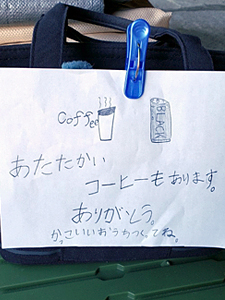 Coffee
BLACK
あたたかい
コーヒーもあります。
ありがとう。
かっこいいおうちつくってね。